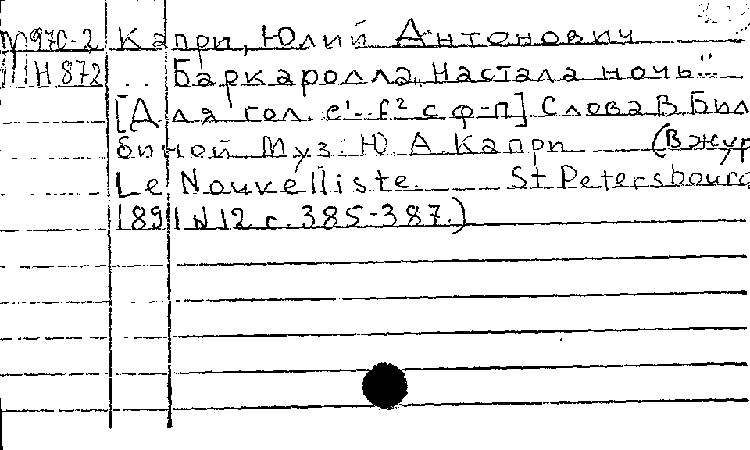 М 970-2 Капри, Юлий Антонович
III Н 872 .. Баркаролла „Настала ночь"
[Для гол. e¹-f² с ф-п] Слова В. Бил
биной Муз. Ю. А. Капри (В жур
Le Nouvelliste. St Petersbourg
1891 N 12 с. 385-387.)